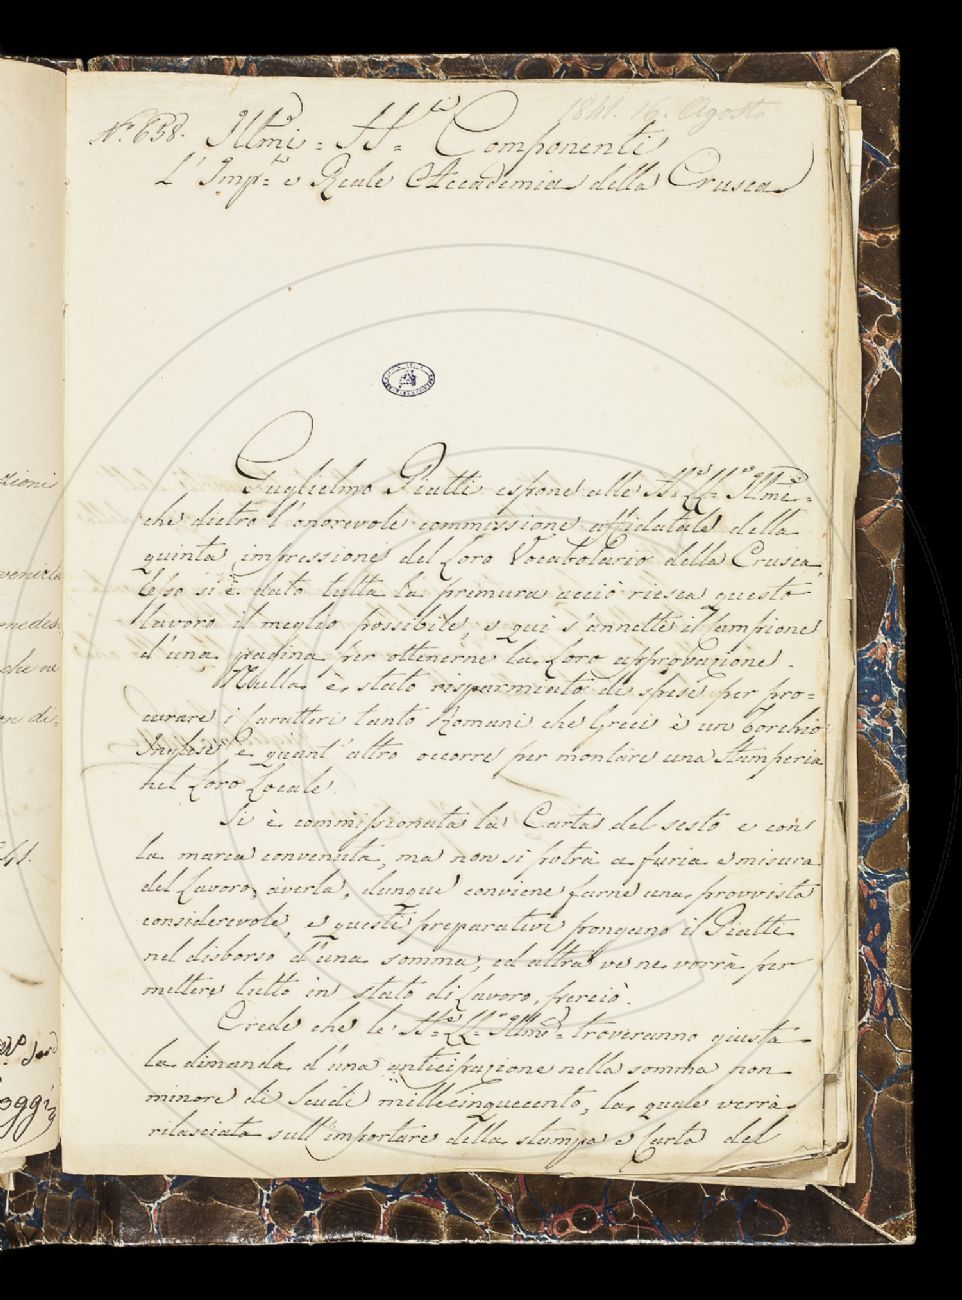 1841. 16. Agosto
N.º 638. Illmi = SS.ri = Componenti
L'Imp.le = e Reale Accademia della Crusca
Guglielmo Piatti espone alle SS.e LL.e Illme =
che dietro l'onorevole commissione affidatale della
quinta impressione del Loro Vocabolario della Crusca,
si è dato tutta la premura acciò riesca questo
lavoro il meglio possibile, e qui s'annette il Campione
d'una pagina per ottenerne la Loro approvazione.
Nulla è stato risparmiato di spese per pro=
curare i caratteri tanto Romani che Greci è un Torchio
Inglese e quant'altro occorre per montare una Stamperia
nel Loro Locale.
Si è commissionata la Carta del sesto e con
la marca convenuta, ma non si potrà a furia e misura
del Lavoro, averla, dunque conviene farne una provvista
considerevole, e questi preparativi pongano il Piatti
nel disborso d'una somma, ed altra ve ne vorrà per
mettere tutto in stato di Lavoro, perciò.
Crede che le SS.e LL.e Illme = troveranno giusta
la dimanda d'una anticipazione nella somma non
minore di Scudi millecinquecento, la quale verrà
rilasciata sull'importare della stampa e Carta del
zioni
che ne
on di=
41.